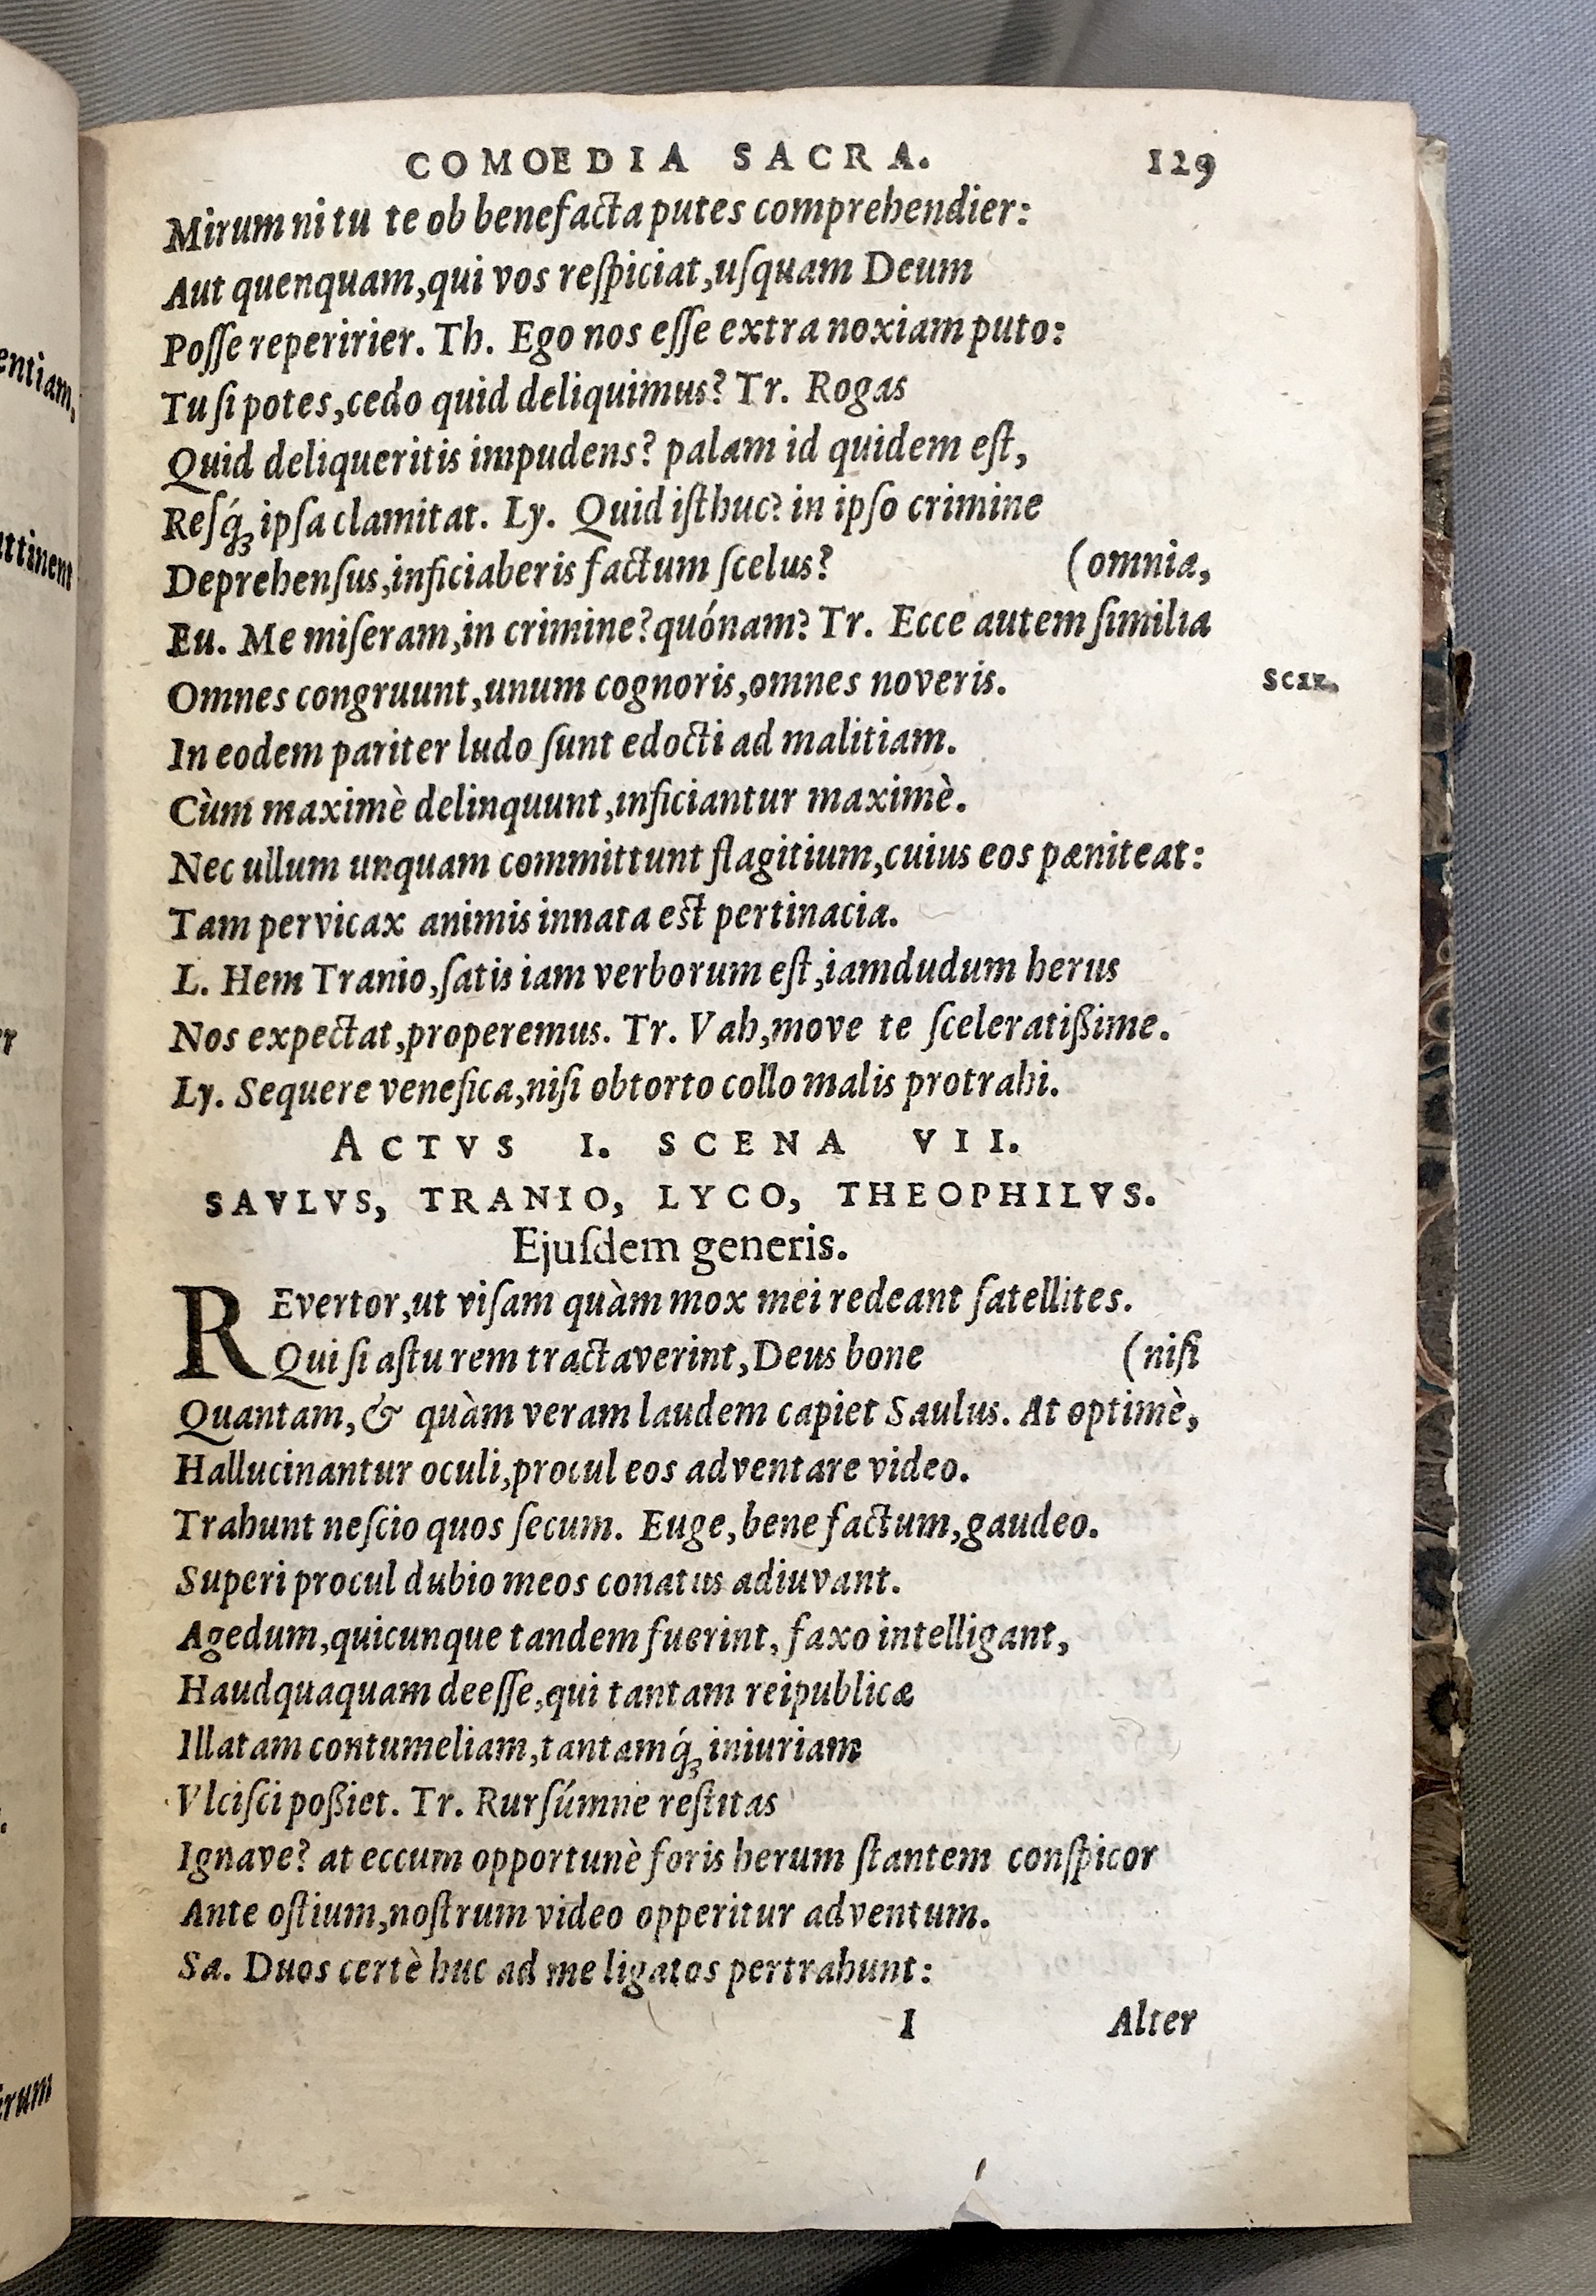 COMOEDIA SACRA. 129
Mirum ni tu te ob benefacta putes comprehendier:
Aut quenquam, qui vos reſpiciat, uſquam Deum
Poſſe reperirier. Th. Ego nos eſſe extra noxiam puto:
Tu ſi potes, cedo quid deliquimus? Tr. Rogas
Quid deliqueritis impudens? palam id quidem eſt,
Reſq́ꝫ ipſa clamitat. Ly. Quid iſthuc? in ipſo crimine
Deprehenſus, inficiaberis factum ſcelus? (omnia,
Eu. Me miſeram, in crimine? quónam? Tr. Ecce autem ſimilia
Omnes congruunt, unum cognoris, omnes noveris.
In eodem pariter ludo ſunt edocti ad malitiam.
Cùm maximè delinquunt, inficiantur maximè.
Nec ullum unquam committunt flagitium, cuius eos pæniteat:
Tam pervicax animis innata est pertinacia.
L. Hem Tranio, ſatis iam verborum eſt, iamdudum herus
Nos expectat, properemus. Tr. Vah, move te ſceleratißime.
Ly. Sequere venefica, niſi obtorto collo malis protrahi.
ACTVS I. SCENA VII.
SAVLVS, TRANIO, LYCO, THEOPHILVS.
Ejuſdem generis.
REvertor, ut viſam quàm mox mei redeant ſatellites.
Qui ſi aſtu rem tractaverint, Deus bone (niſi
Quantam, & quàm veram laudem capiet Saulus. At optimè,
Hallucinantur oculi, procul eos adventare video.
Trahunt neſcio quos ſecum. Euge, bene factum, gaudeo.
Superi procul dubio meos conatus adiuvant.
Agedum, quicunque tandem fuerint, faxo intelligant,
Haudquaquam deeſſe, qui tantam reipublicæ
Illatam contumeliam, tantamq́ꝫ iniuriam
Vlciſci poßiet. Tr. Rurſúmne reſtitas
Ignave? at eccum opportunè foris herum ſtantem conſpicor
Ante oſtium, noſtrum video opperitur adventum.
Sa. Duos certè huc ad me ligatos pertrahunt:
I Alter